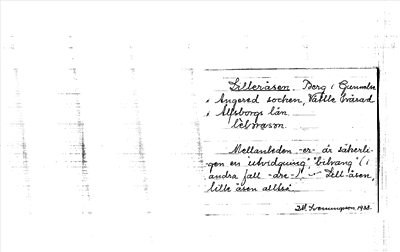 Lilleråsen. Berg i Gunnilse
i Angered socken, Vättle härad
i Älfsborgs län.
Mellanleden -er- är säkerli-
gen en "utvidgning", "bihang" (i
andra fall -are-). Lill-åsen,
lille åsen alltså.
1938.